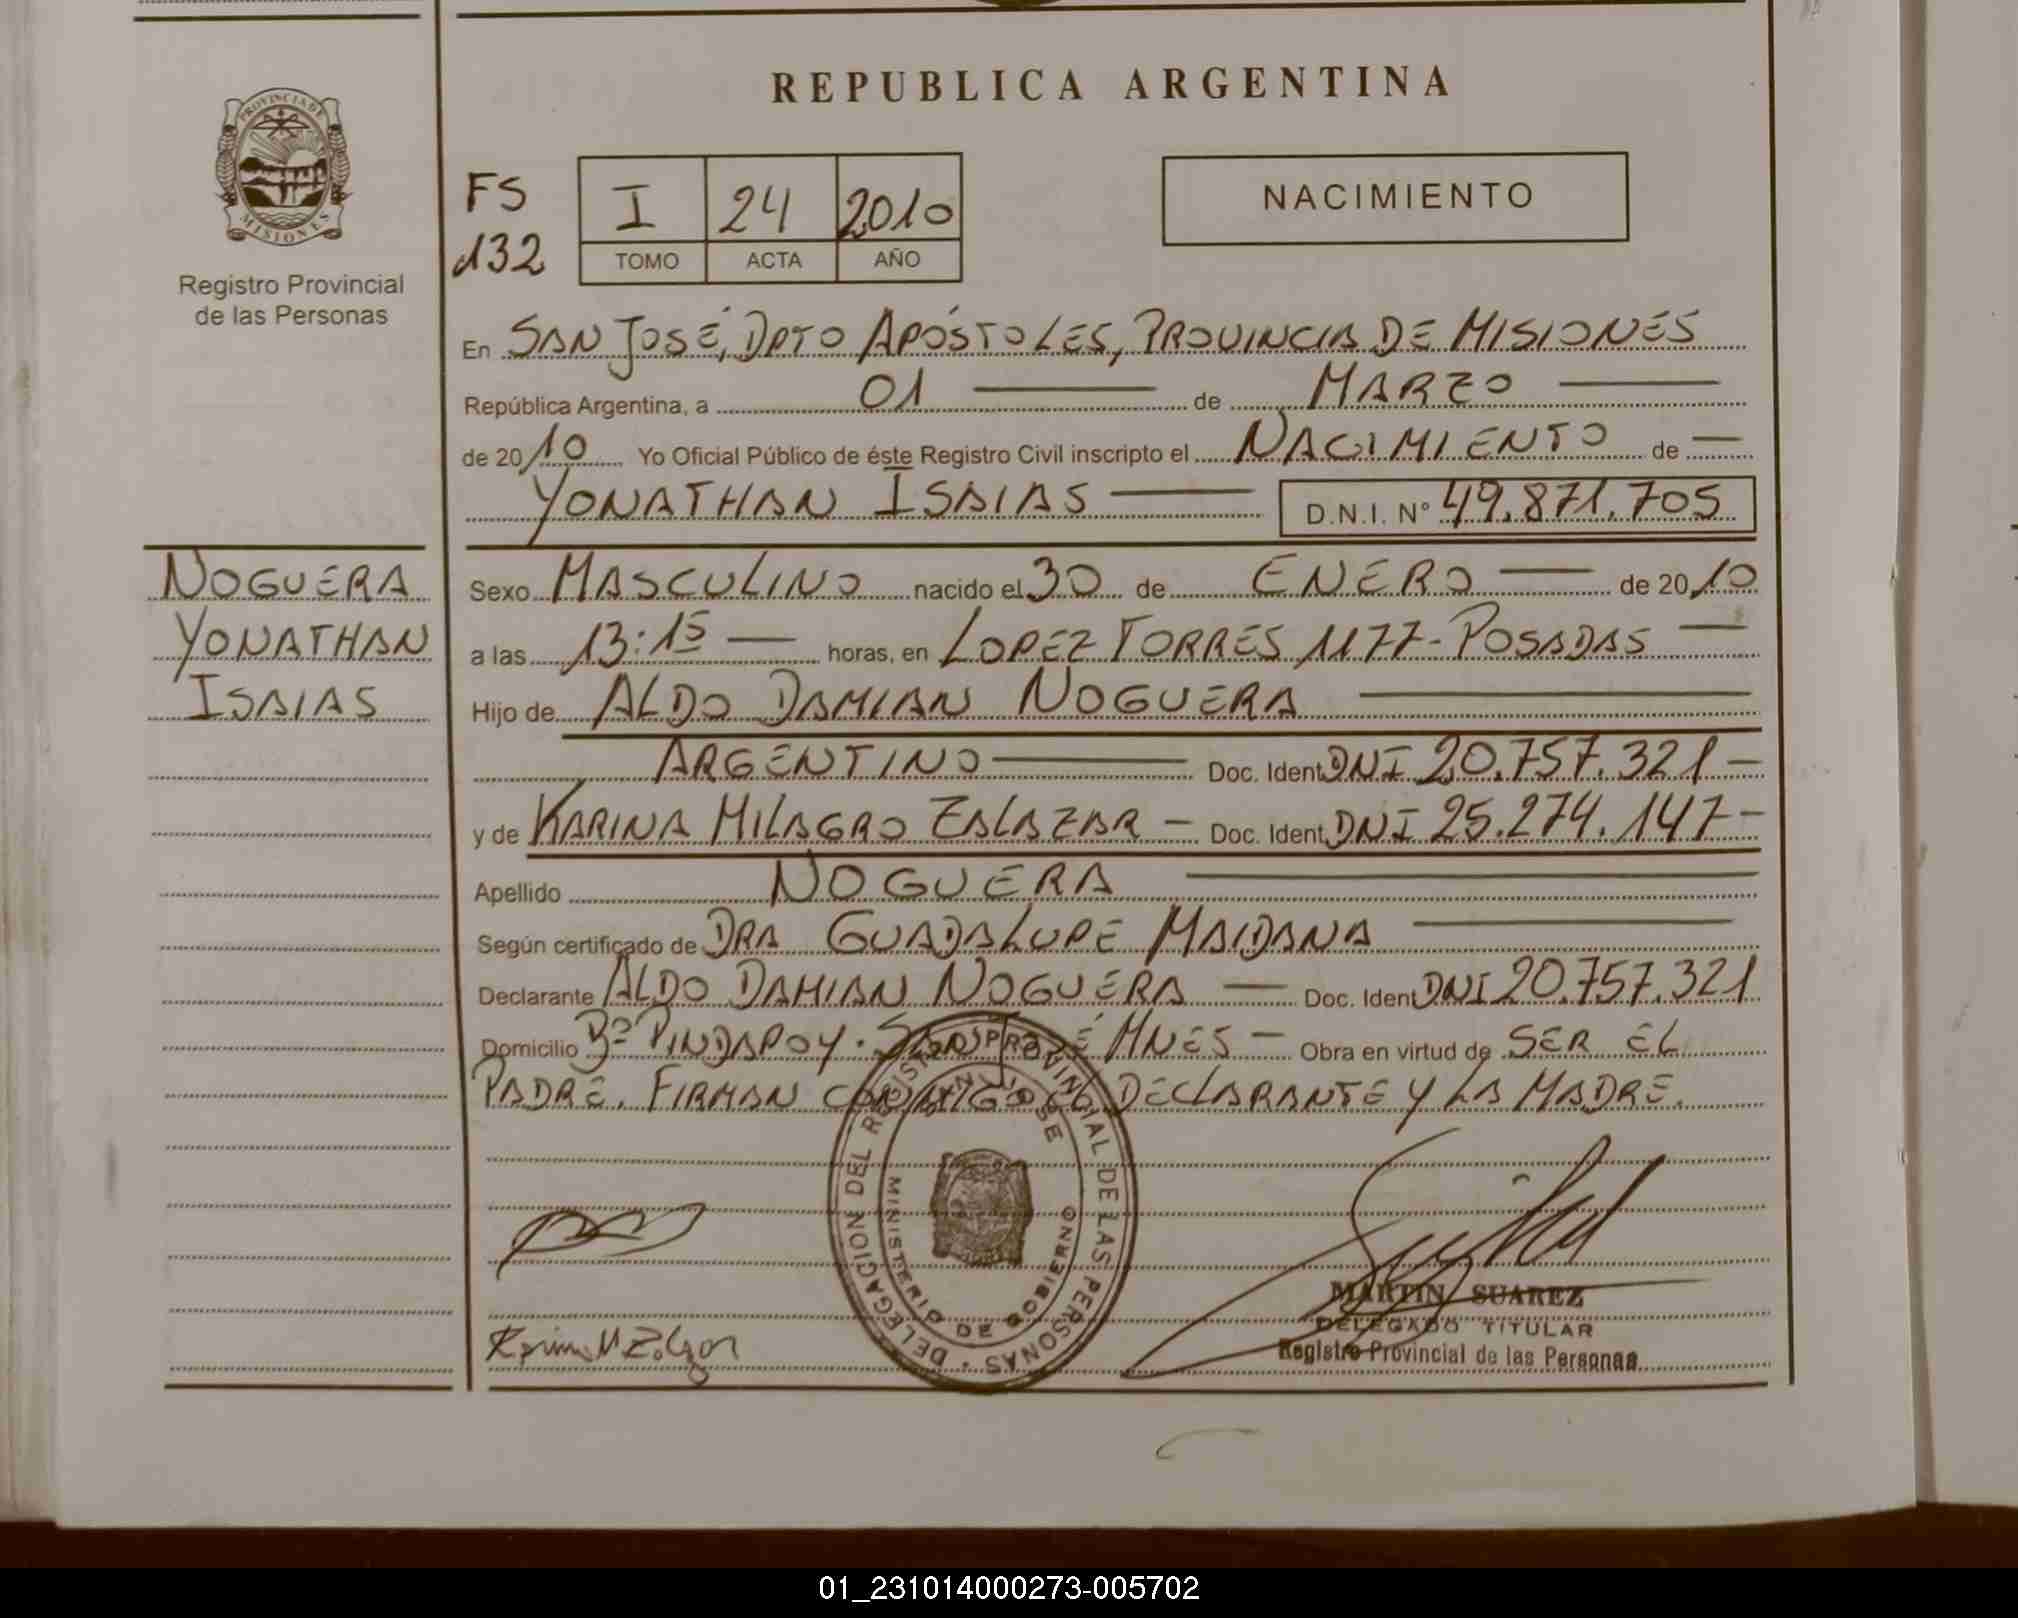 PROVINCIA DE
MISIONES
Registro Provincial
de las Personas
REPUBLICA ARGENTINA
FS
132
I 24 2010
TOMO ACTA AÑO
NACIMIENTO
En SAN JOSÉ, DPTO APÓSTOLES, PROVINCIA DE MISIONES
República Argentina, a 01 de MARZO
de 2010 Yo Oficial Público de éste Registro Civil inscripto el NACIMIENTO de
YONATHAN ISAIAS D.N.I. N° 49.871.705
NOGUERA
YONATHAN
ISAIAS
Sexo MASCULINO nacido el 30 de ENERO de 2010
a las 13:15 horas, en LOPEZ TORRES 1177-POSADAS
Hijo de ALDO DAMIAN NOGUERA
ARGENTINO Doc. Ident DNI 20.757.321
y de KARINA MILAGRO ZALAZAR Doc. Ident DNI 25.274.147
Apellido NOGUERA
Según certificado de DRA GUADALUPE MAIDANA
Declarante ALDO DAMIAN NOGUERA Doc. Ident DNI 20.757.321
Domicilio Bº PINDAPOY. SAN JOSÉ MNES Obra en virtud de SER EL
PADRE. FIRMAN CONMIGO EL DECLARANTE Y LA MADRE.
DELEGACION DEL REGISTRO PROVINCIAL DE LAS PERSONAS
SAN JOSE
MINISTERIO DE GOBIERNO
Karina M Zalazar
MARTIN SUAREZ
DELEGADO TITULAR
Registro Provincial de las Personas
01_231014000273-005702